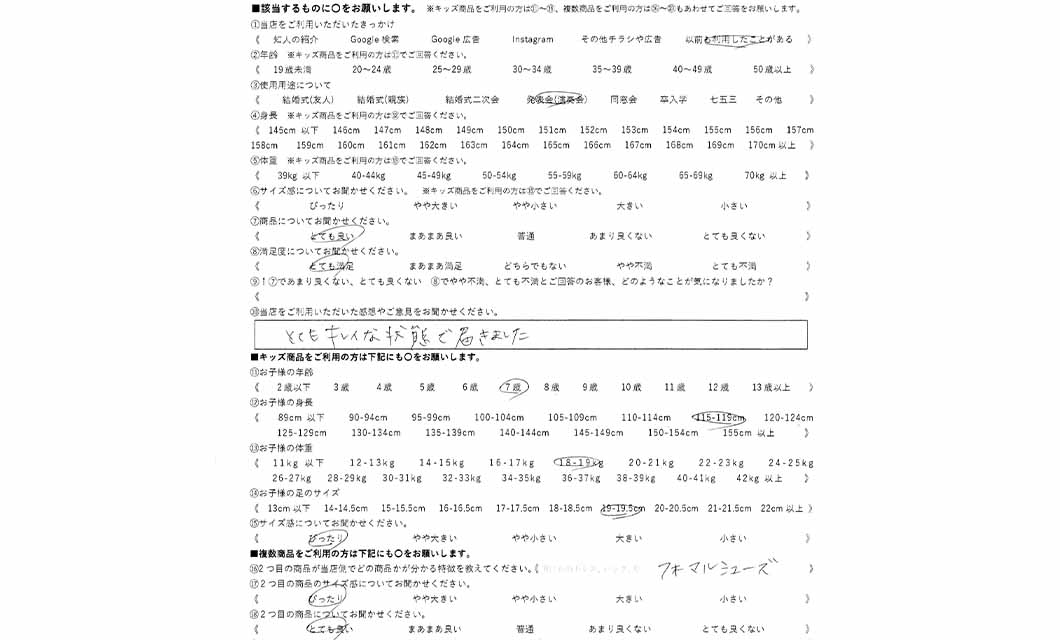 ■該当するものに〇をお願いします。 ※キッズ商品をご利用の方は⑪～⑮、複数商品をご利用の方は⑯～⑳もあわせてご回答をお願いします。
①当店をご利用いただいたきっかけ
《 知人の紹介 Google 検索 Google 広告 Instagram その他チラシや広告 以前も利用したことがある 》
②年齢 ※キッズ商品をご利用の方は⑪でご回答ください。
《 19歳未満 20～24歳 25～29歳 30～34歳 35～39歳 40～49歳 50歳以上 》
③使用用途について
《 結婚式(友人) 結婚式(親族) 結婚式二次会 発表会(演奏会) 同窓会 卒入学 七五三 その他 》
④身長 ※キッズ商品をご利用の方は⑫でご回答ください。
《 145cm 以下 146cm 147cm 148cm 149cm 150cm 151cm 152cm 153cm 154cm 155cm 156cm 157cm
158cm 159cm 160cm 161cm 162cm 163cm 164cm 165cm 166cm 167cm 168cm 169cm 170cm 以上 》
⑤体重 ※キッズ商品をご利用の方は⑬でご回答ください。
《 39kg 以下 40-44kg 45-49kg 50-54kg 55-59kg 60-64kg 65-69kg 70kg 以上 》
⑥サイズ感についてお聞かせください。 ※キッズ商品をご利用の方は⑮でご回答ください。
《 ぴったり やや大きい やや小さい 大きい 小さい 》
⑦商品についてお聞かせください。
《 とても良い まあまあ良い 普通 あまり良くない とても良くない 》
⑧満足度についてお聞かせください。
《 とても満足 まあまあ満足 どちらでもない やや不満 とても不満 》
⑨↑⑦であまり良くない、とても良くない ⑧でやや不満、とても不満とご回答のお客様、どのようなことが気になりましたか？
《 》
⑩当店をご利用いただいた感想やご意見をお聞かせください。
とてもキレイな状態で届きました
■キッズ商品をご利用の方は下記にも〇をお願いします。
⑪お子様の年齢
《 2歳以下 3歳 4歳 5歳 6歳 7歳 8歳 9歳 10歳 11歳 12歳 13歳以上 》
⑫お子様の身長
《 89cm 以下 90-94cm 95-99cm 100-104cm 105-109cm 110-114cm 115-119cm 120-124cm
125-129cm 130-134cm 135-139cm 140-144cm 145-149cm 150-154cm 155cm 以上 》
⑬お子様の体重
《 11kg 以下 12-13kg 14-15kg 16-17kg 18-19kg 20-21kg 22-23kg 24-25kg
26-27kg 28-29kg 30-31kg 32-33kg 34-35kg 36-37kg 38-39kg 40-41kg 42kg 以上 》
⑭お子様の足のサイズ
《 13cm 以下 14-14.5cm 15-15.5cm 16-16.5cm 17-17.5cm 18-18.5cm 19-19.5cm 20-20.5cm 21-21.5cm 22cm 以上 》
⑮サイズ感についてお聞かせください。
《 ぴったり やや大きい やや小さい 大きい 小さい 》
■複数商品をご利用の方は下記にも〇をお願いします。
⑯2つ目の商品が当店側でどの商品かが分かる特徴を教えてください。《 フォーマルシューズ 》
⑰2つ目の商品のサイズ感についてお聞かせください。
《 ぴったり やや大きい やや小さい 大きい 小さい 》
⑱2つ目の商品についてお聞かせください。
《 とても良い まあまあ良い 普通 あまり良くない とても良くない 》